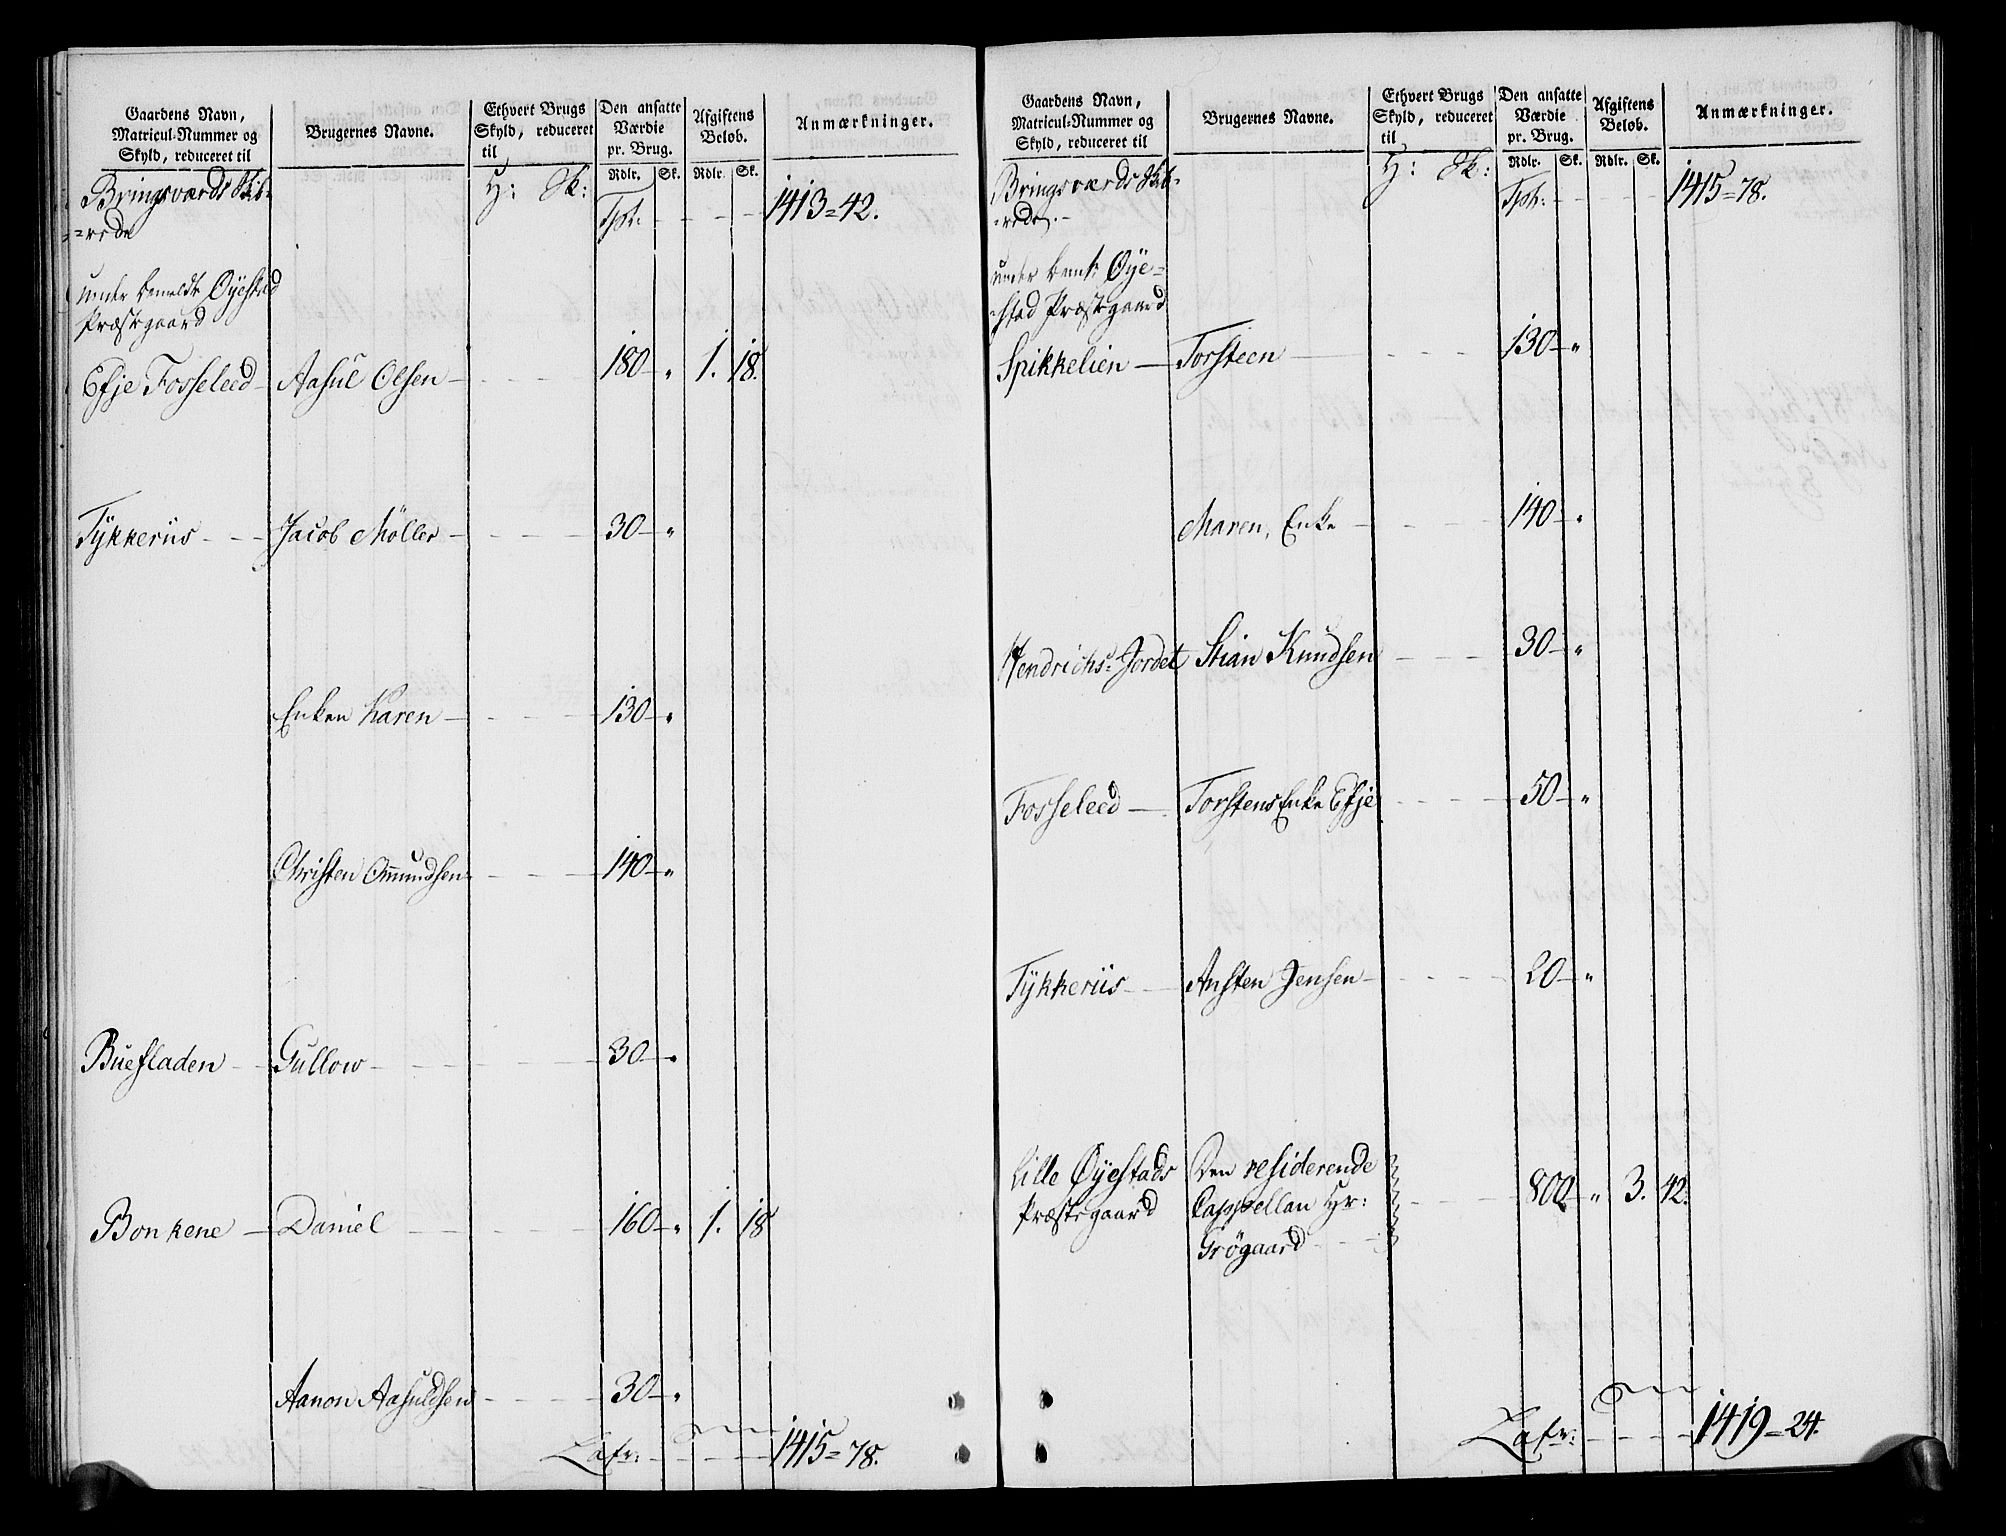 Gaardens Navn,
Matricul-Nummer og
Skyld, reduceret til
Brugernes Navne.
Ethvert Brugs
Skyld, reduceret
til
Den ansatte
Værdie
pr. Brug.
Afgiftens
Beløb.
Anmærkninger.
Rdlr. Sk. Rdlr. Sk.
H: Sk:
Bringsværds Skib-
=rede
Tpt: 1413=42.
under bemeldte Øyestad
Præstegaard
Efje Fosseleed Aasul Olsen 180 " 1. 18.
Tykkeriis Jacob Möller 30 "
Enken Karen 130 "
Christen Omundsen 140 "
Buefladen Gullow 30 "
Bonkene Daniel 160 " 1. 18
Aanon Aasuldsen 30 "
Lafr: 1415=78.
Gaardens Navn,
Matricul-Nummer og
Skyld, reduceret til
Brugernes Navne.
Ethvert Brugs
Skyld, reduceret
til
Den ansatte
Værdie
pr. Brug.
Afgiftens
Beløb.
Anmærkninger.
Rdlr. Sk. Rdlr. Sk.
H: Sk:
Bringsværds Skib-
=rede.
Tpt: 1415=78.
under bemte Øye=
stad Præstegaard
Spikkelien Torsteen 130 "
Maren, Enke 140 "
Hendrichs=Jordet Stian Knudsen 30 "
Fosseleed Torstens Enke Efje 50 "
Tykkeriis Ansten Jensen 20 "
Lille Øyestads Den residerende
Præstegaard Cappellan Hr: 800 " 3. 42.
Grögaard
Lafr: 1419=24.